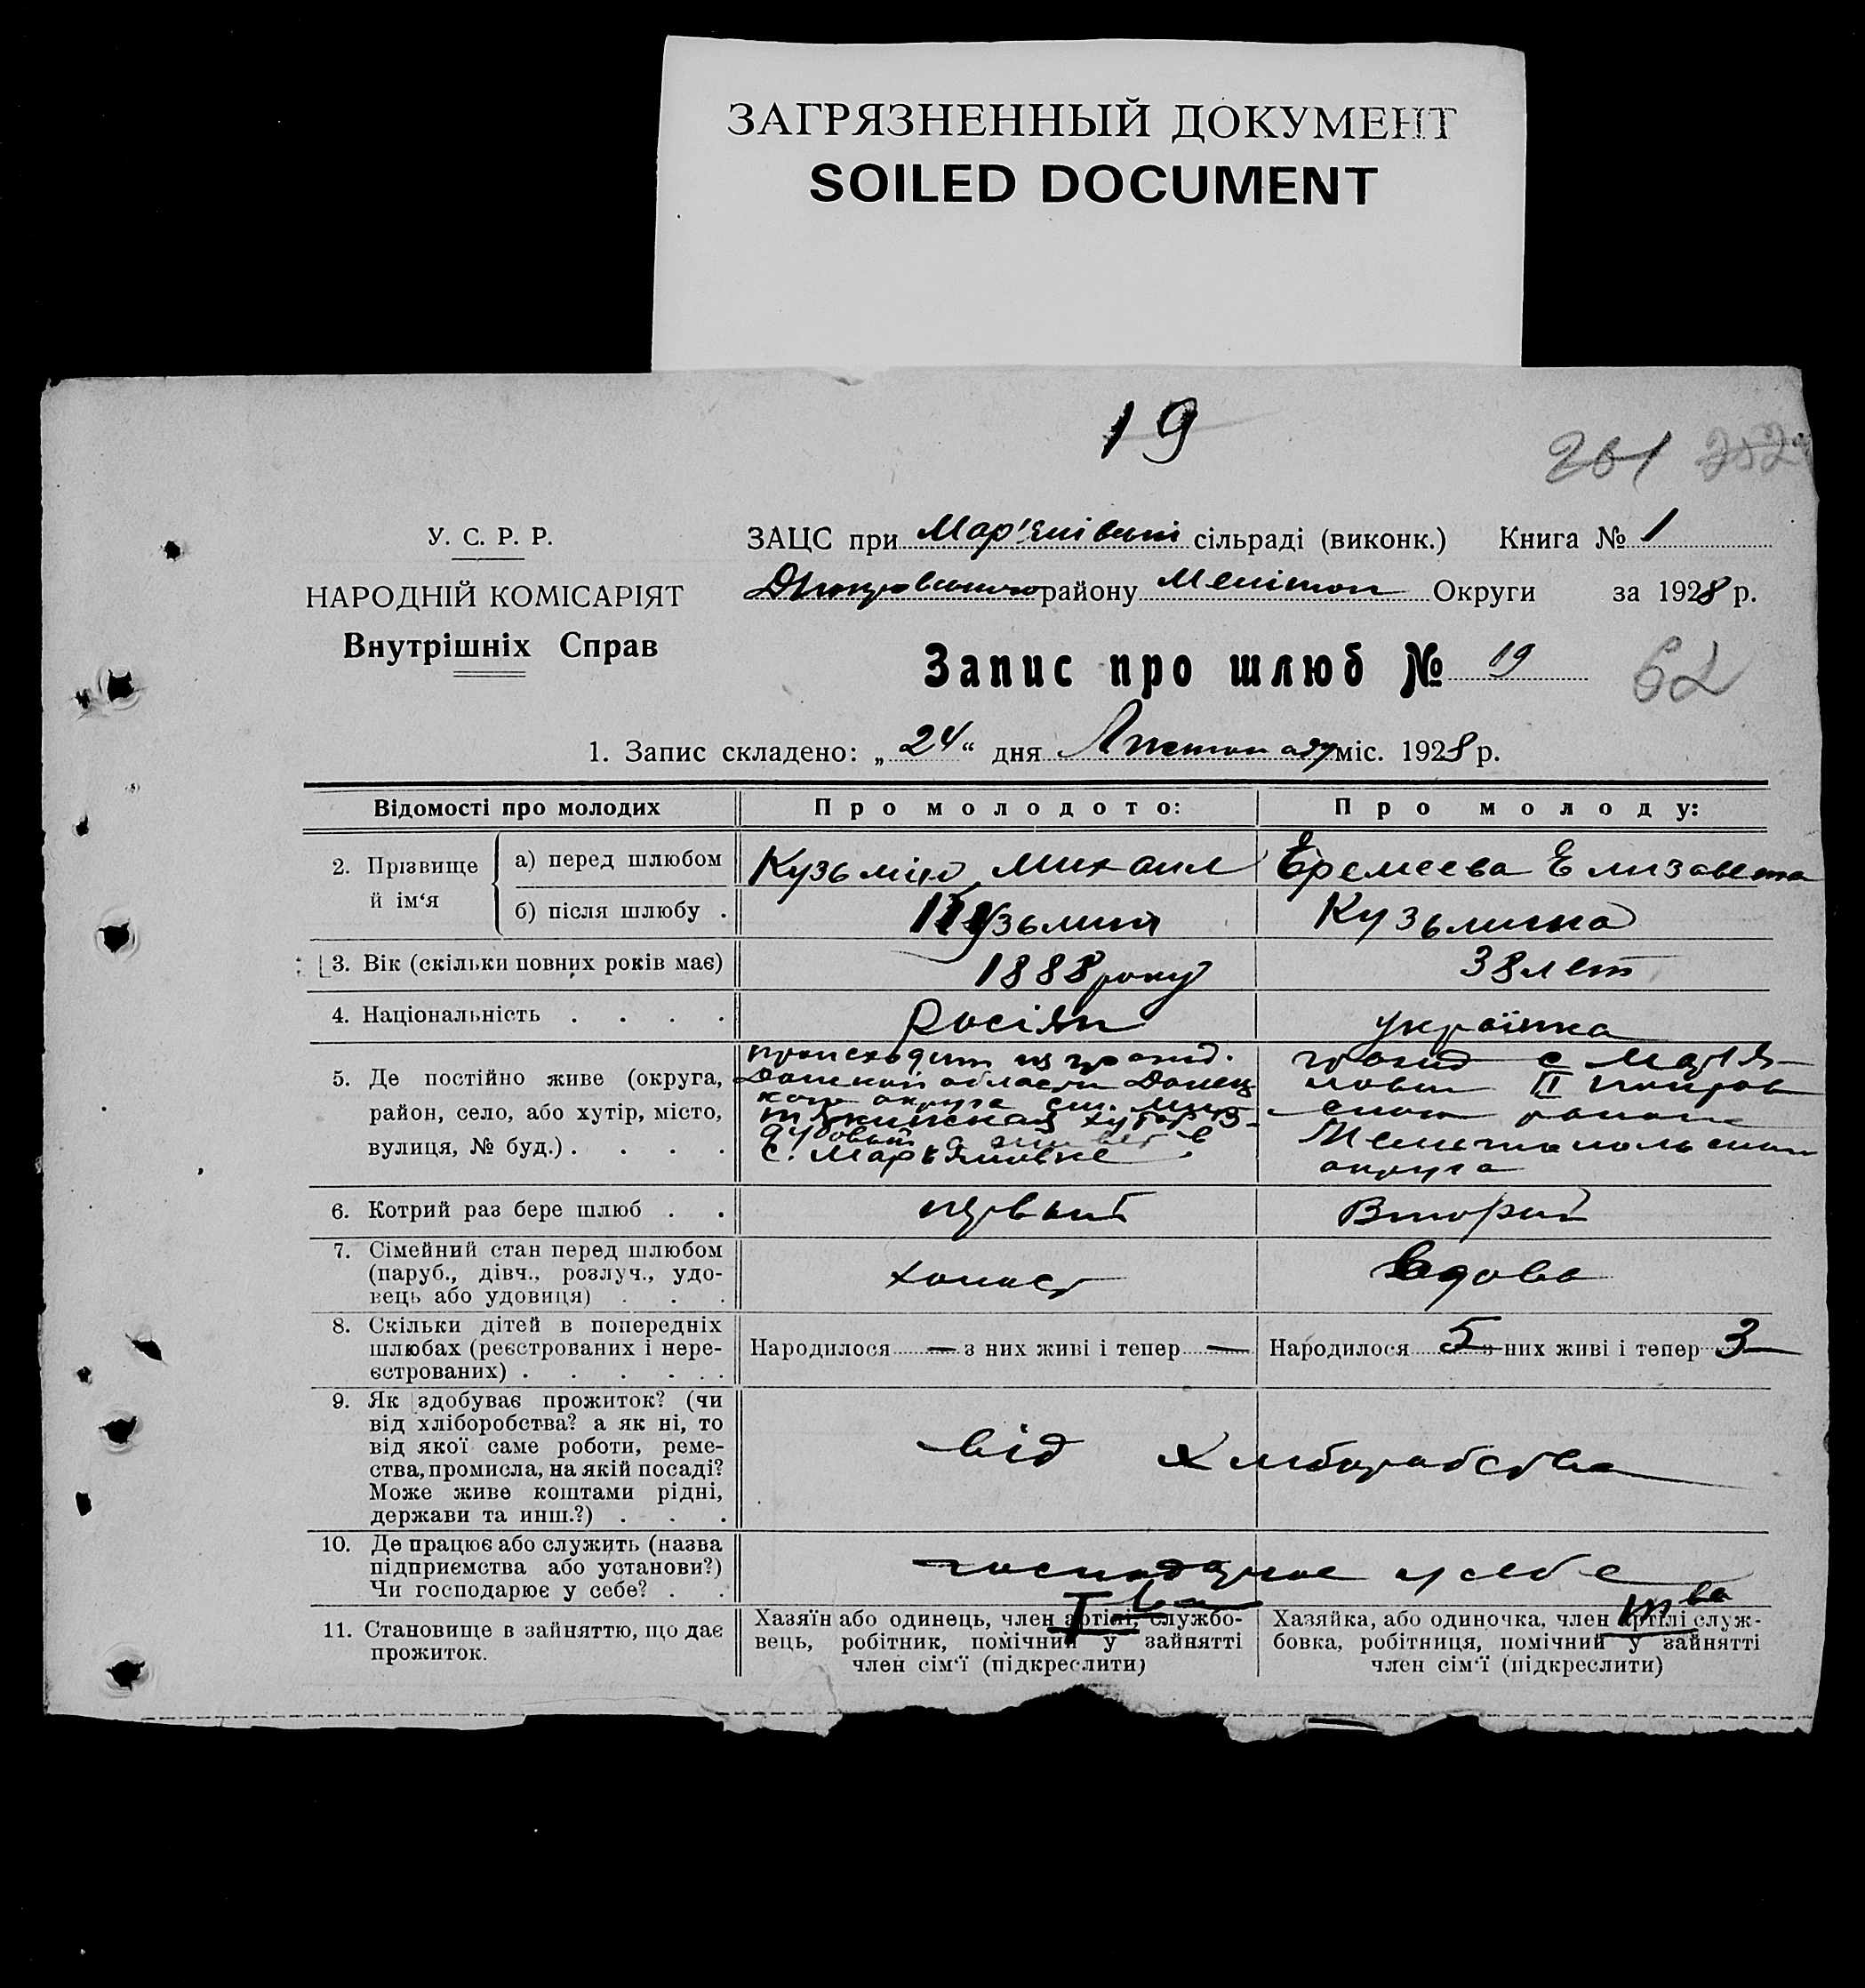 ЗАГРЯЗНЕННЫЙ ДОКУМЕНТ
SOILED DOCUMENT
19
261 252
У. С. Р. Р.
НАРОДНІЙ КОМІСАРІЯТ
Внутрішніх Справ
ЗАЦС при Мар'янівські сільраді (виконк.) Книга № 1
району Мелітоп Округи за 1928 р.
Запис про шлюб № 19
62
1. Запис складено: „24“ дня Листопаду міс. 1928 р.
Відомості про молодих
Про молодого:
Про молоду:
2. Прізвище й ім‘я
а) перед шлюбом
Кузьмін Михаил
Еремеева Елизавета
б) після шлюбу .
Кузьмин
Кузьмина
3. Вік (скільки повних років має)
1888 року
38 лет
4. Національність . . . .
Росіян
українка
5. Де постійно живе (округа,
район, село, або хутір, місто,
вулиця, № буд.) . . . .
происходит из гражд.
Донской области Донец
кого округа ст.
хутор
дубовый, а живет в
с. Марьяновке
гражд с Мар'я
новки II покров
ского района
Мелитопольского
округа
6. Котрий раз бере шлюб . .
первый
Вторий
7. Сімейний стан перед шлюбом
(паруб., дівч., розлуч., удо-
вець або удовиця) . . .
холост
Вдова
8. Скільки дітей в попередніх
шлюбах (реєстрованих і нере-
єстрованих) . . . . . .
Народилося — з них живі і тепер —
Народилося 5 з них живі і тепер 3
9. Як здобуває прожиток? (чи
від хліборобства? а як ні, то
від якої саме роботи, реме-
ства, промисла, на якій посаді?
Може живе коштами рідні,
держави та инш.?) . . .
від хліборобства
10. Де працює або служить (назва
підприємства або установи?)
Чи господарює у себе? . .
господарює у себе
11. Становище в зайняттю, що дає
прожиток.
Хазяїн або одинець, член артілі, службо-
вець, робітник, помічний у зайнятті
член сім‘ї (підкреслити)
Хазяйка, або одиночка, член артілі служ-
бовка, робітниця, помічний у зайнятті
член сім‘ї (підкреслити)